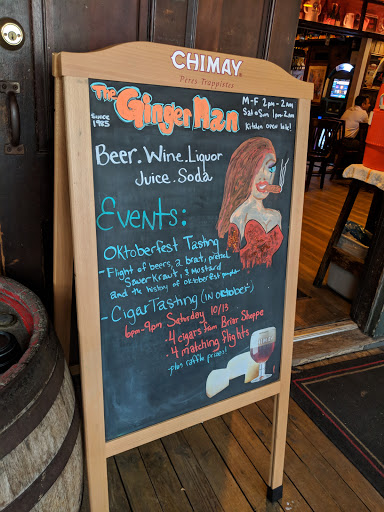 CHIMAY
Pères Trappistes
The Ginger Man
SINCE 1985
M-F 2pm-2am
Sat & Sun 1pm-2am
Kitchen open late!
Beer. Wine. Liquor
Juice. Soda
EVENTS:
Oktoberfest Tasting
- Flight of beers, 2 brat, pretzel
Sauerkraut, & Mustard
and the history of oktoberfest
- Cigar Tasting (IN OCTOBER)
6pm-9pm Saturday 10/13
· 4 cigars from Briar Shoppe
· 4 matching flights
plus raffle prizes!!